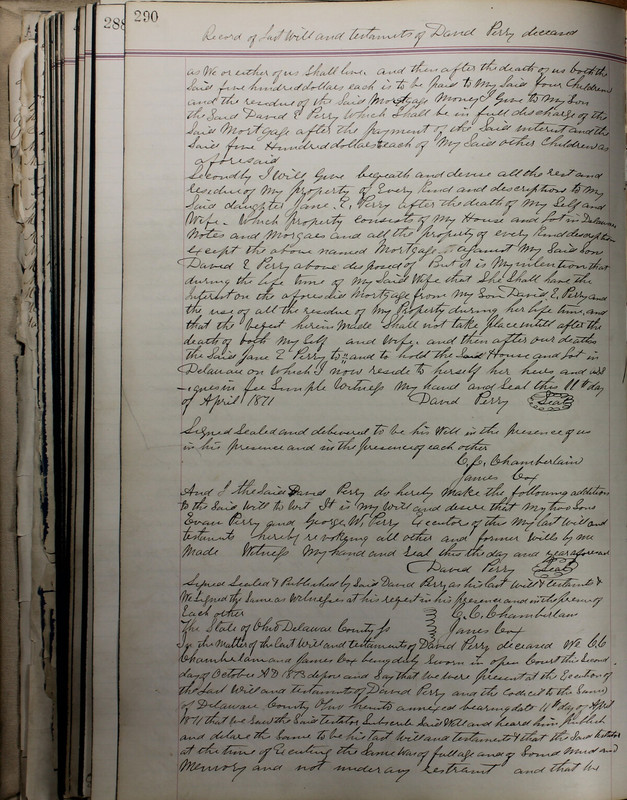 288
290
Record of Last Will and testaments of David Perry deceased
as We or either of us Shall live. and then after the death of us both the
Said five hundred dollars each is to be paid to My Said four Children
and the residue of the Said Mortgage Money I Give to My Son
the Said David E Perry Which Shall be in full discharge of the
Said Mortgage after the payment of the Said interest and the
Said five Hundred dollars to each of My Said other Children as
aforesaid
Secondly I Will Give bequeath and devise all the rest and
residue of My Property of Every Kind and descriptions to My
Said daughter Jane E, Perry after the death of My Self and
Wife. Which property consists of My House and Lot in Delaware
Notes and Morgaes and all the property of every Kind description
except the above named Mortgage against My Said Son
David E Perry above disposed of But it is My intention that
during the life time of My Said Wife that She Shall have the
Interest on the aforesaid Mortgage from My Son David E, Perry and
the use of all the residue of My Property during her life time, and
that the beqest herein Made Shall not take place untill after the
death of both My Self and Wife. and then after our deaths
the Said Jane E Perry to " and to hold the Said House and Lot in
Delaware on Which I now reside to herself her heirs, and
-ignes in fee Simple Witness My hand and Seal this 11th day
of April 1871 David Perry Seal
Signed Sealed and delivered to be his Will in the presence of us
in his presence and in the presence of each other
C. C. Chamberlain
James Cox
And I the Said David Perry do hereby Make the following addition
to the Said Will to Wit It is My Will and desire that My two Sons
Evan Perry and George W, Perry Executors of this My last Will and
testiments hereby revoking all other and former Wills by me
Made Witness My hand and Seal this the day and year aforesaid
David Perry Seal
Signed Sealed & Published by Said David Perry as his last Will & testiments &
We Signed the Same as Witnesses at his reqest in his presence and in the presence of
Each other C. C. Chamberlain
The State of Ohio Delaware County Ss James Cox
In the Matter of the Last Will and testiments of David Perry deceased We C C
Chamberlain and James Cox being duly Sworn in open Court the Second
day of October AD 1873 depose and Say that We were present at the Execution of
the Last Will and testiment of David Perry and the Codocil to the Same
of Delaware County Ohio hereto annexed bearing date 11th day of April
1871 that We Saw the Said testator Subscribe Said Will and heard him publish
and declare the Same to be his last Will and testiments & that the Said testator
at the time of Executing the Same Was of full age and of Sound Mind and
Memory and not under any restraint and that We